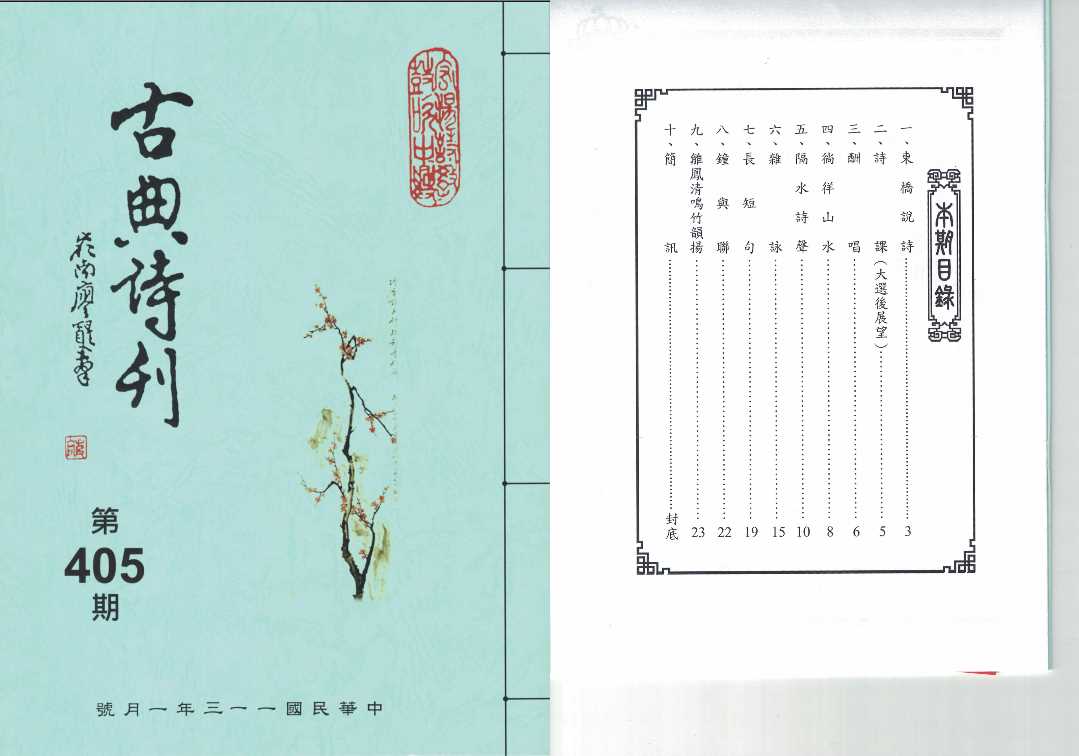 古典詩刊
嶺南廖從雲書
第
405
期
中華民國一一三年一月號
本期目錄
一、東橋說詩……3
二、詩課(大選後展望)……5
三、酬唱……6
四、徜徉山水……8
五、隔水詩聲……10
六、雜詠……15
七、長短句……19
八、鐘與聯……22
九、雛鳳清鳴竹韻揚……23
十、簡訊……封底